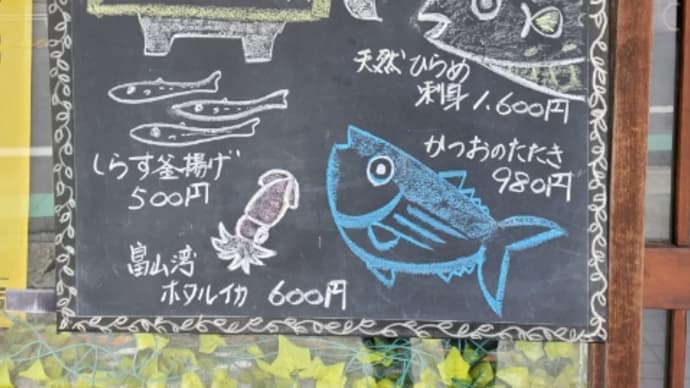 天然ひらめ
刺身 1.600円
しらす釜揚げ
500円
かつおのたたき
980円
富山湾
ホタルイカ 600円